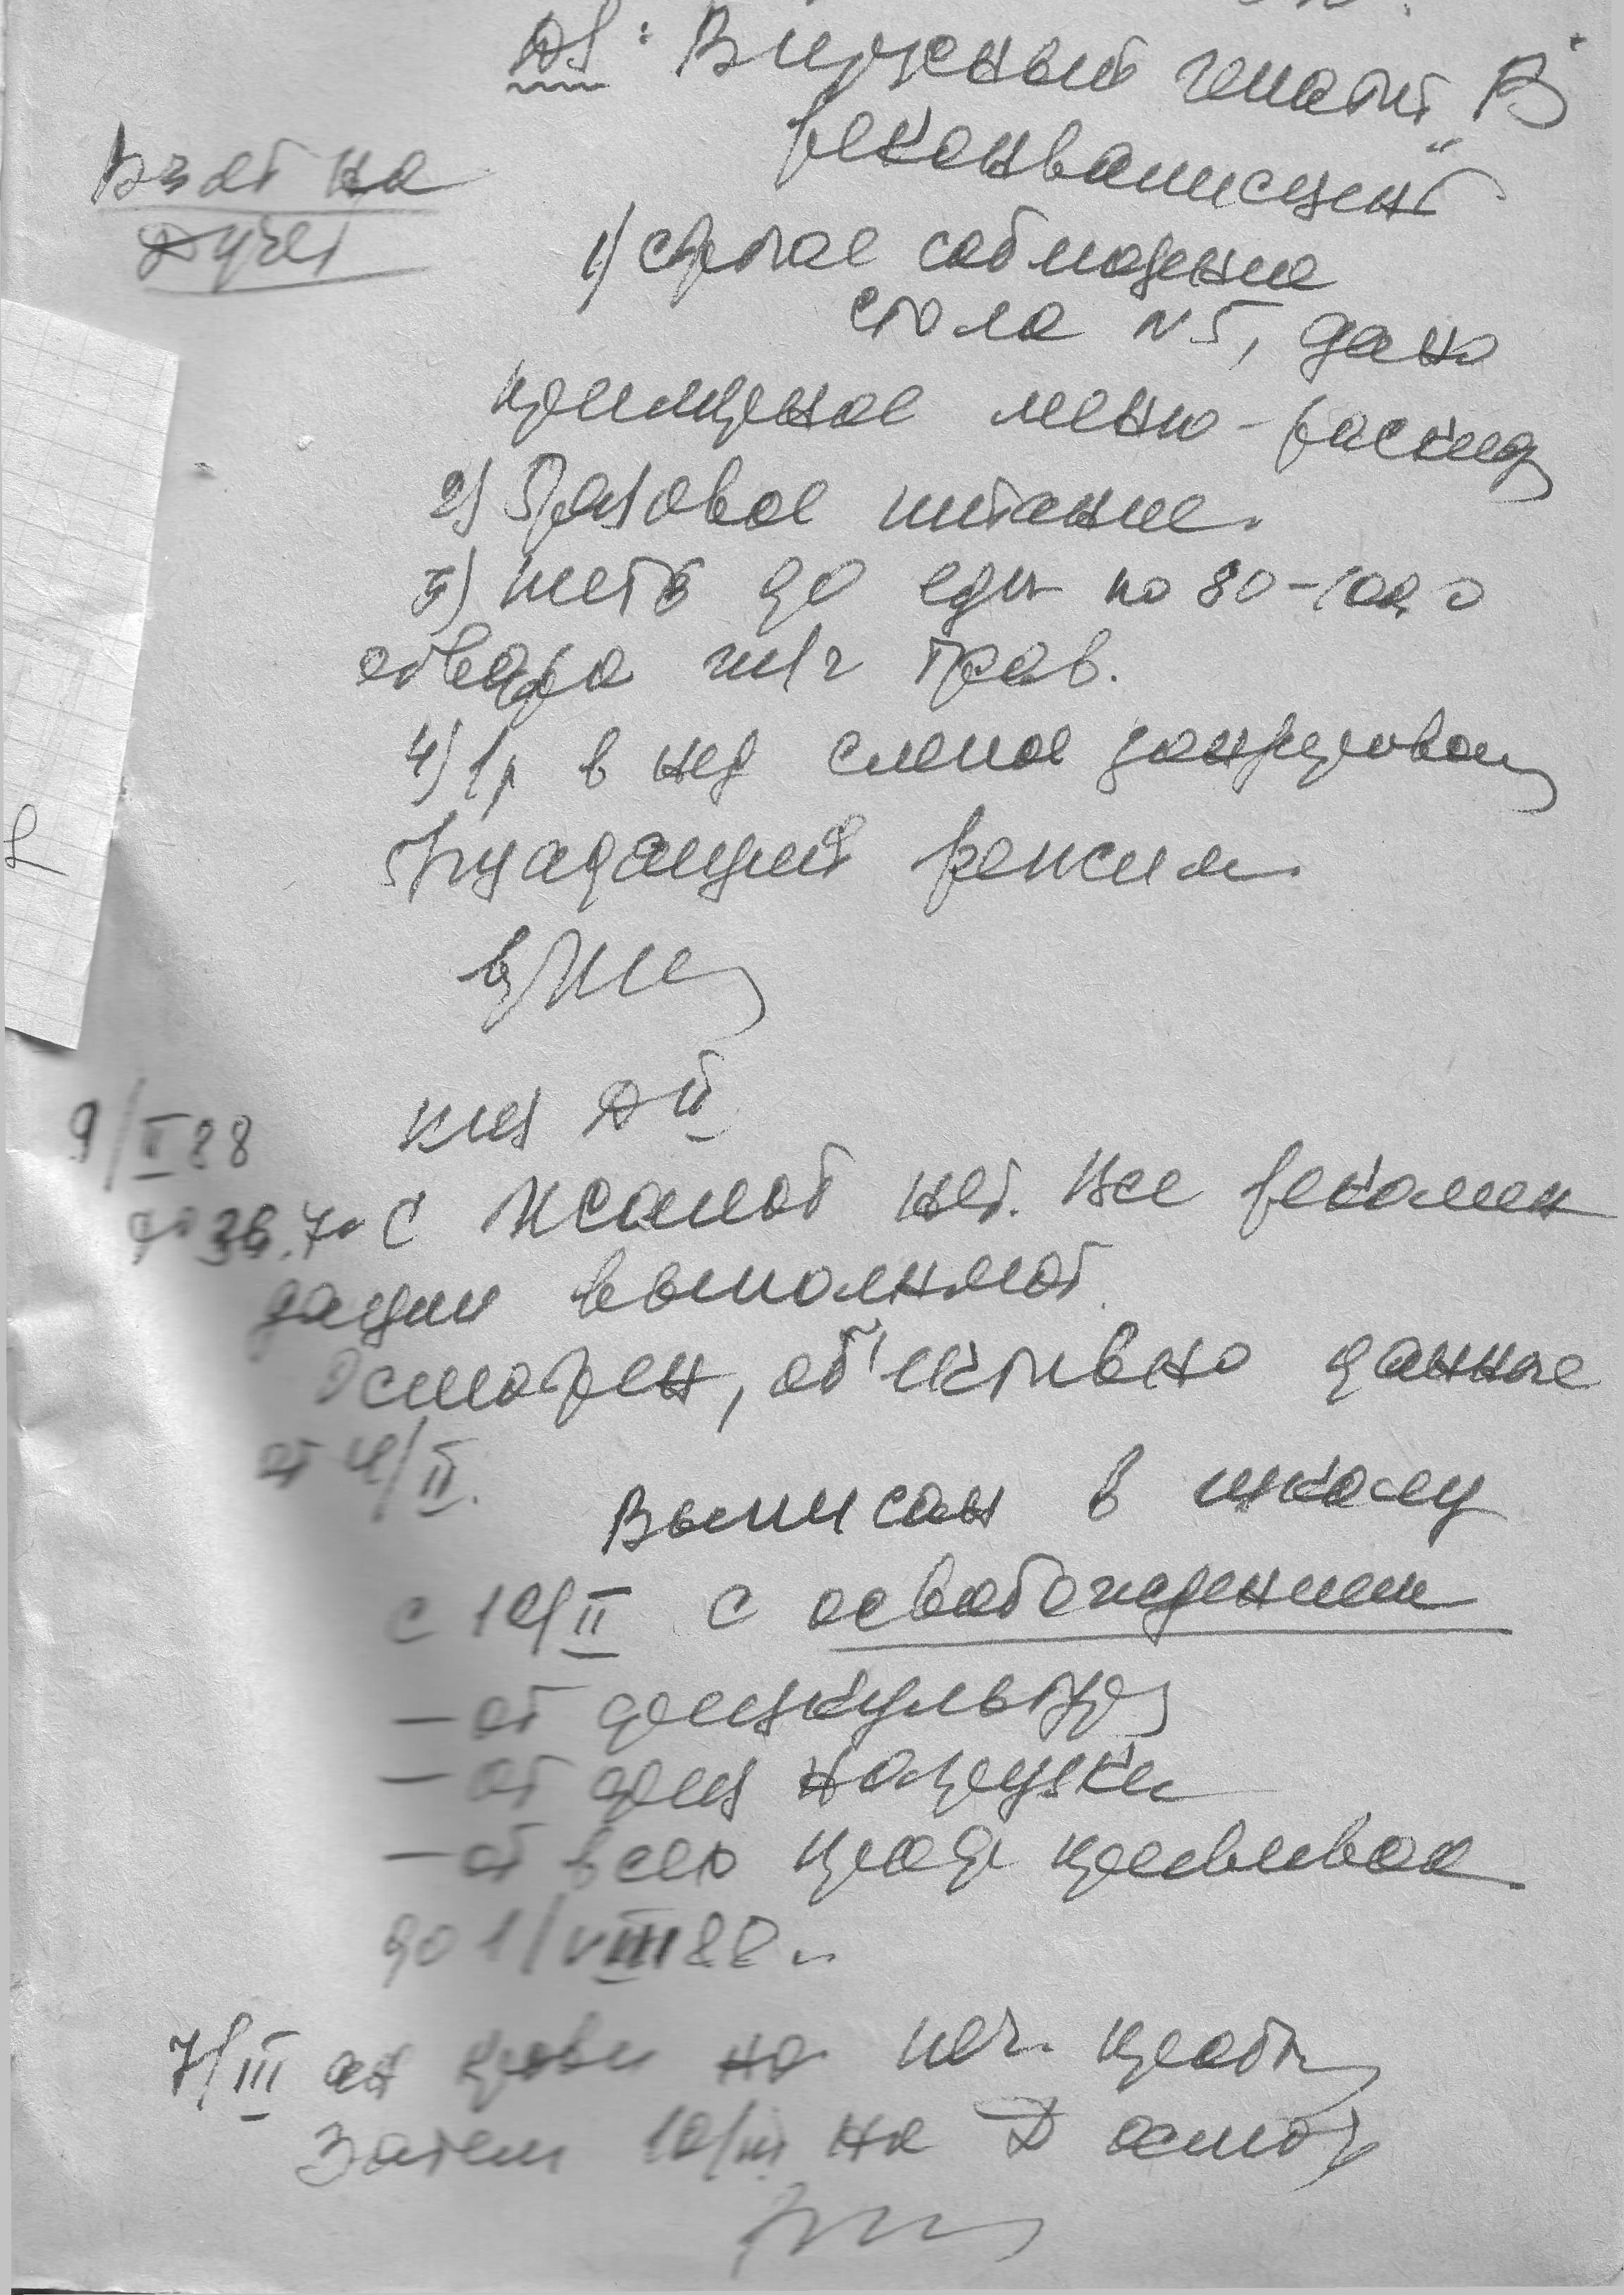 DS: Вирусный гепатит "В"
реконвалисцент
Взят на
Д учет
1) строгое соблюдение
стола N5, дано
примерное меню-расклад
2) 5 разовое питание.
3) пить до еды по 80-100,0
отвара ж/г трав.
4) 1р в нед слепое зондирован
5) щадящий режим.
9/II 88
каб ДII
до зв. 7 00 С Жалоб нет. Все рекомен
дации выполняют.
Осмотрен, об'ективно данные
от 4/II.
Выписан в школу
с 10/II с освобождением
— от физкультуры
— от физ нагрузки
— от всех проф прививок
до 1/VIII 88 г.
7/III ан крови на печ. пробы
Затем 10/III на Д осмотр